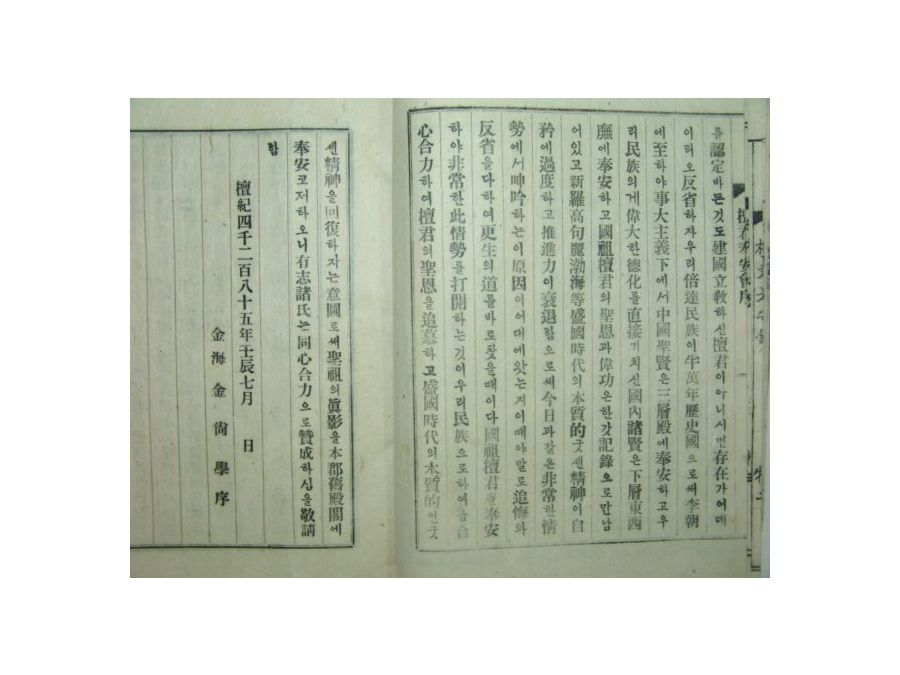 를認定바든것도建國立敎하신檀君이아니시면存在가어데
이려오反省하자우리倍達民族이半萬年歷史國으로써李朝
에至하야事大主義下에서中國聖賢은三層殿에奉安하고우
리民族의게偉大한德化를直接기치신國內諸賢은下層東西
廡에奉安하고國祖檀君의聖恩과偉功은한갓記錄으로만남
어있고新羅高句麗渤海等盛國時代의本質的굿쎈精神이自
矜에過度하고推進力이衰退함으로써今日과갈은非常한情
勢에서呻吟하는이原因이어대에왓는지이때야말로追悔와
反省을다하여更生의道를바로찾을때이다國祖檀君을奉安
하야非常한此情勢를打開하는것이우리民族으로하여금合
心合力하여檀君의聖恩을追慕하고盛國時代의本質的인굿
쎈精神을回復하자는意圖로써聖祖의眞影을本郡舊殿閣에
奉安코저하오니有志諸氏는同心合力으로贊成하심을敬請
함
檀紀四千二百八十五年壬辰七月 日
金海金尙學序